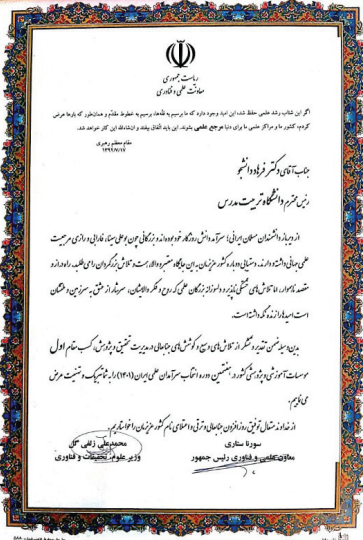 ریاست جمهوری
معاونت علمی و فناوری
اگر این شتاب رشد علمی حفظ شد، این امید وجود دارد که ما برسیم به قله‌ها، برسیم به خطوط مقدّم و همان‌طور که بارها عرض
کردم، کشور ما و مراکز علمی ما برای دنیا مرجع علمی بشوند. این باید اتّفاق بیفتد و ان‌شاءالله این کار خواهد شد.
مقام معظم رهبری
جناب آقای دکتر فرهاد دانشجو
رئیس محترم دانشگاه تربیت مدرس
از دیرباز دانشمندان مسلمان ایرانی؛ سرآمد دانش روزگار خود بوده‌اند و بزرگانی چون بوعلی سینا، فارابی و رازی مرجعیت
علمی جهانی داشته و دارند. دستیابی دوباره کشور عزیزمان به این جایگاه معتبر و والا، همت و تلاش بزرگمردان را می‌طلبد. راه دراز و
مقصد ناهموار، اما تلاش‌های خستگی ناپذیر و دلسوزانه بزرگان علمی که روح و فکر والایشان، سرشار از عشق به سرزمین و هستان
است امیدها را زنده نگه داشته است.
بدین وسیله ضمن تقدیر و تشکر از تلاش‌های وسیع و کوشش‌های جنابعالی در مدیریت تحقیق و پژوهش، کسب مقام اول
موسسات آموزشی و پژوهشی کشور در هفتمین دوره انتخاب سرآمدان علمی ایران (۱۴۰۱) را به شما تبریک و تهنیت عرض
می‌نماییم.
از خداوند متعال توفیق روزافزون جنابعالی و ترقی و اعتلای نام کشور عزیزمان را خواستاریم.
سورنا ستاری
معاون علمی و فناوری رئیس جمهور
محمدعلی زلفی گل
وزیر علوم، تحقیقات و فناوری